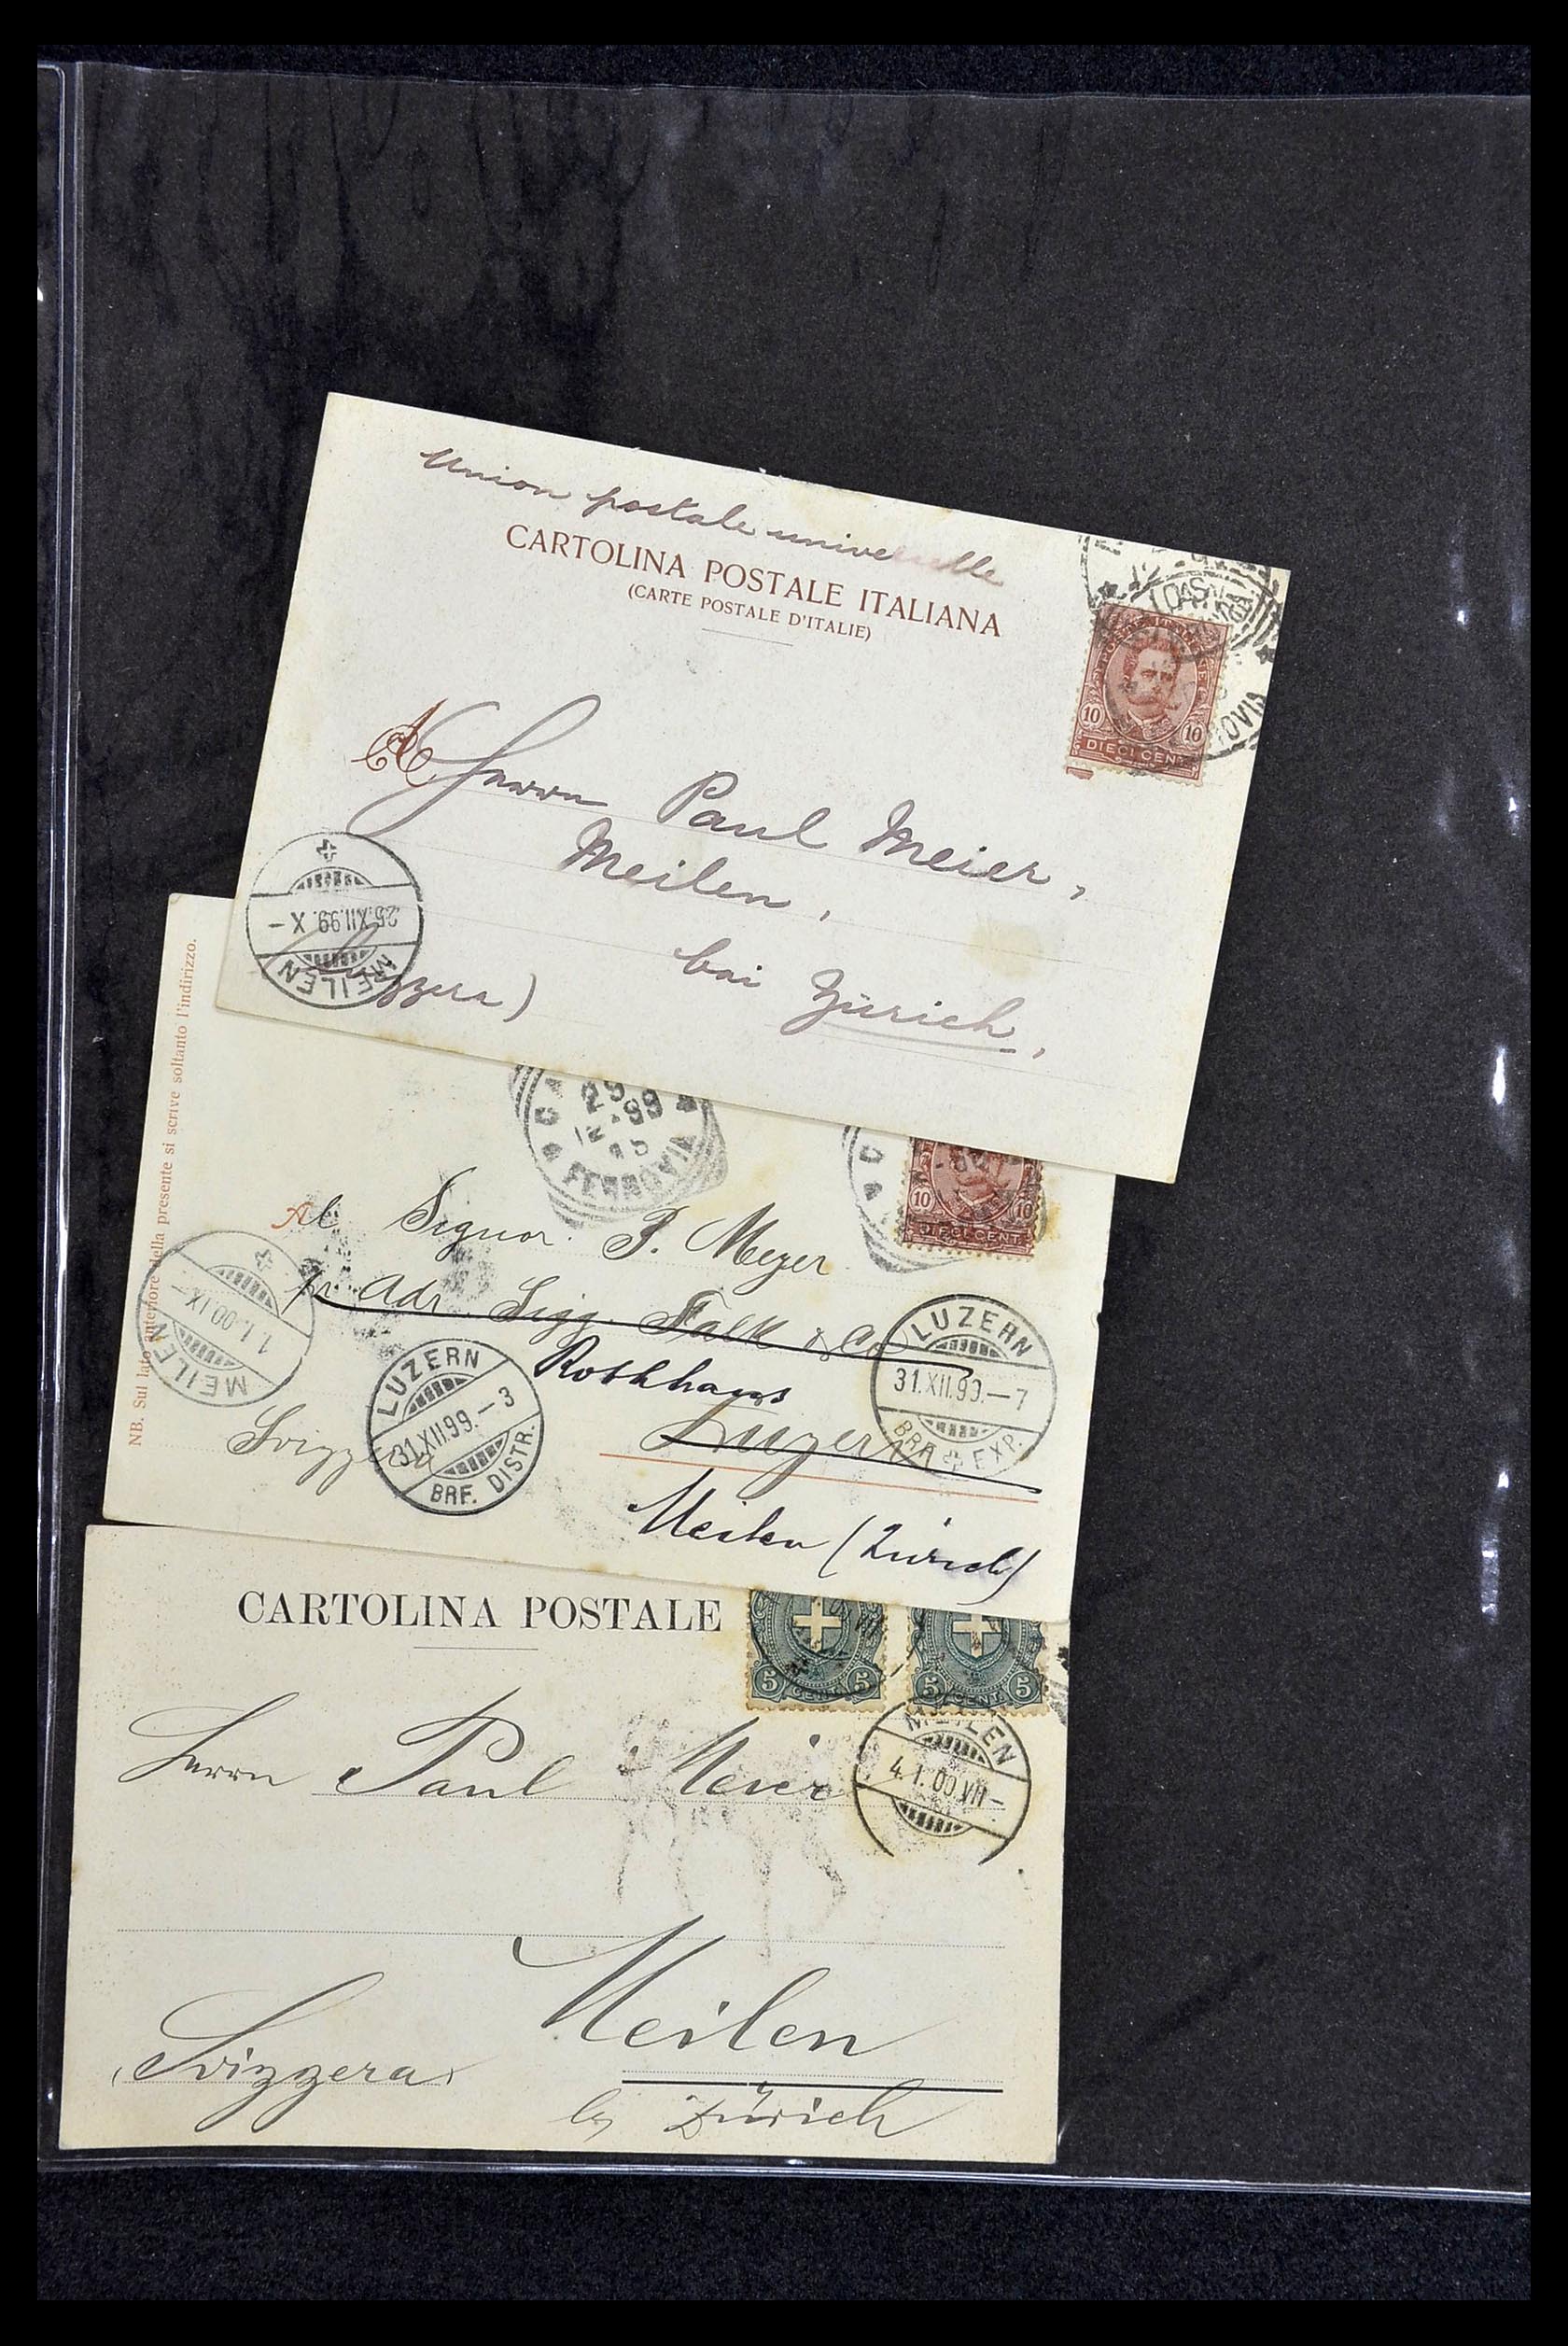 Union postale universelle
CARTOLINA POSTALE ITALIANA
(CARTE POSTALE D'ITALIE)
10 10
DIECI CENT
A Herrn Paul Meier,
Meilen,
bei Zürich,
(Svizzera)
25.XII.99. X-
MEILEN
NB. Sul lato anteriore della presente si scrive soltanto l'indirizzo.
29
12-99
FERROVIA
10 10
DIECI CENT.
Al Signor P. Meyer
pr. Adr. Sigg. Falk & Co
Luzern
Svizzera
Meilen (Zürich)
MEILEN
1.I.00.IX-
LUZERN
31.XII.99.-3
BRF. DISTR.
LUZERN
31.XII.99.-7
BRF. EXP.
CARTOLINA POSTALE
5 CENT. 5
5 CENT. 5
MEILEN
4.I.00.VII-
Herrn Paul Meier
Meilen
(Svizzera)
Zürich